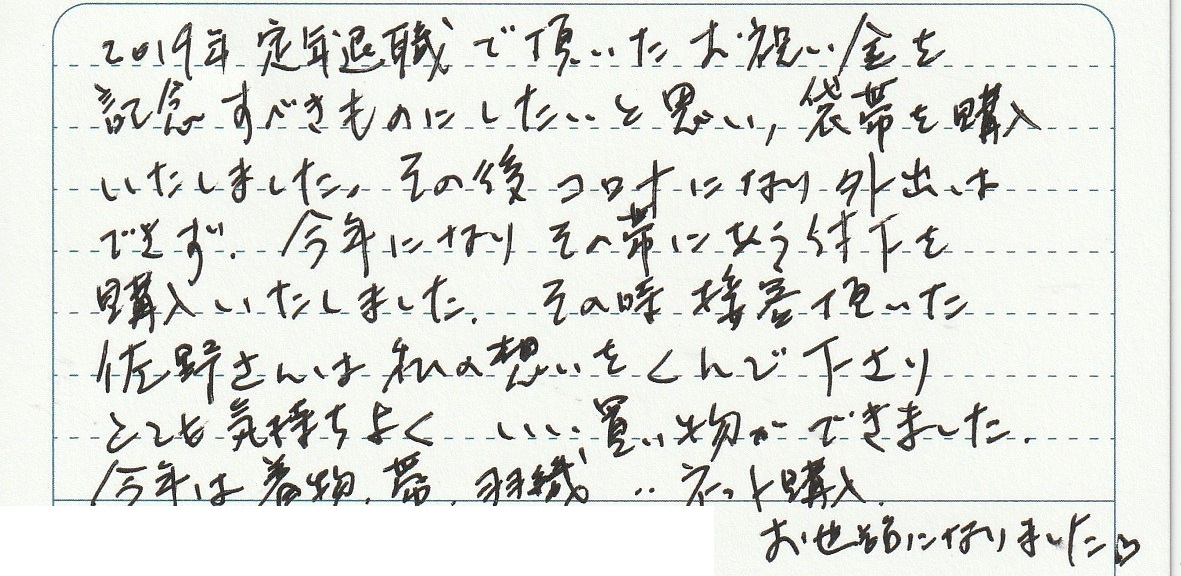 2019年定年退職で頂いたお祝い金を
記念すべきものにしたいと思い,袋帯を購入
いたしました。その後コロナになり外出は
できず. 今年になりその帯にあう付下を
購入いたしました. その時接客頂いた
佐野さんは私の想いをくんで下さり
とても気持ちよくいい買い物ができました.
今年は着物.帯.羽織‥ネット購入.
お世話になりました♡